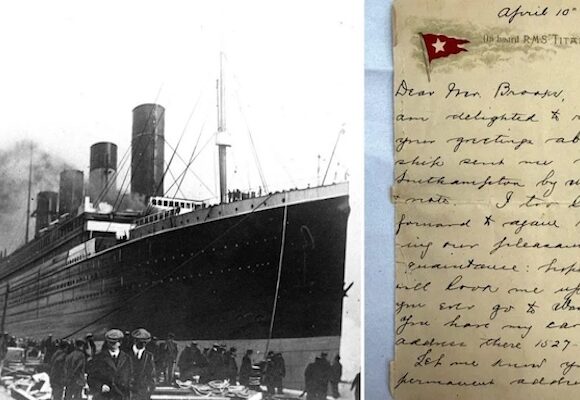 April 10th
On board RMS TITA
Dear Mr. Brooks,
am delighted to
your greetings ab
ship sent me
Southampton by
note. I too
forward to again
ing our pleasan
quaintance: hop
will look me up
you ever go to
You have my car
address there 1527-
Let me know yo
permanent addre